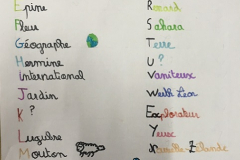 Epine
Fleur
Géographe
Hermine
International
Jardin
K ?
Lugubre
Mouton
Renard
Sahara
Terre
U ?
Vaniteux
Werth Léon
Explorateur
Yeux
Nouvelle-Zélande